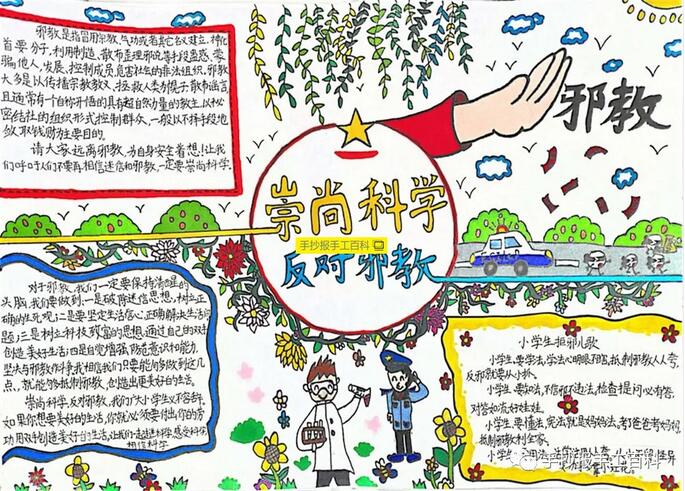 邪教是指冒用宗教、气功或者其它名义建立,神化
首要分子,利用制造、散布歪理邪说等手段蛊惑、蒙
骗他人,发展、控制成员,危害社会的非法组织。邪教
大多是以传播宗教教义、拯救人类为幌子,散布谣言,
且通常有一个自称开悟的具有超自然力量的教主,以秘
密结社的组织形式控制群众,一般以不择手段地
敛取钱财为主要目的。
请大家远离邪教,为自身安全着想!让我
们呼吁人们不要再相信迷信和邪教,一定要崇尚科学。
邪教
崇尚科学
手抄报手工百科
反对邪教
对于邪教,我们一定要保持清醒的
头脑,我们要做到:一是破除迷信思想,树立正
确的生死观;二是要坚定生活信心,正确解决生活问
题;三是树立科技致富的思想,通过自己的双手
创造美好生活;四是自觉增强防范意识和能力,
坚决与邪教作斗争,我相信我们只要能多做到这几
点,就能够抵制邪教,创造出更美好的生活。
崇尚科学,反对邪教,我们广大小学生义不容辞,
如果你想要美好的生活,你就必须要付出,你的劳
动,用双手创造美好的生活,让我们一起走进科学,感受科学,
相信科学
小学生拒邪儿歌
小学生,要学法,学法心明眼睛亮,抵制邪教人人夸,
反邪就要从小抓。
小学生,要知法,不信邪不违法,检查提问必有答,
对答如流好娃娃。
小学生,要懂法,宪法就是妈妈法,考了爸爸考妈妈,
抵制邪教利全家。
手抄报手工百科